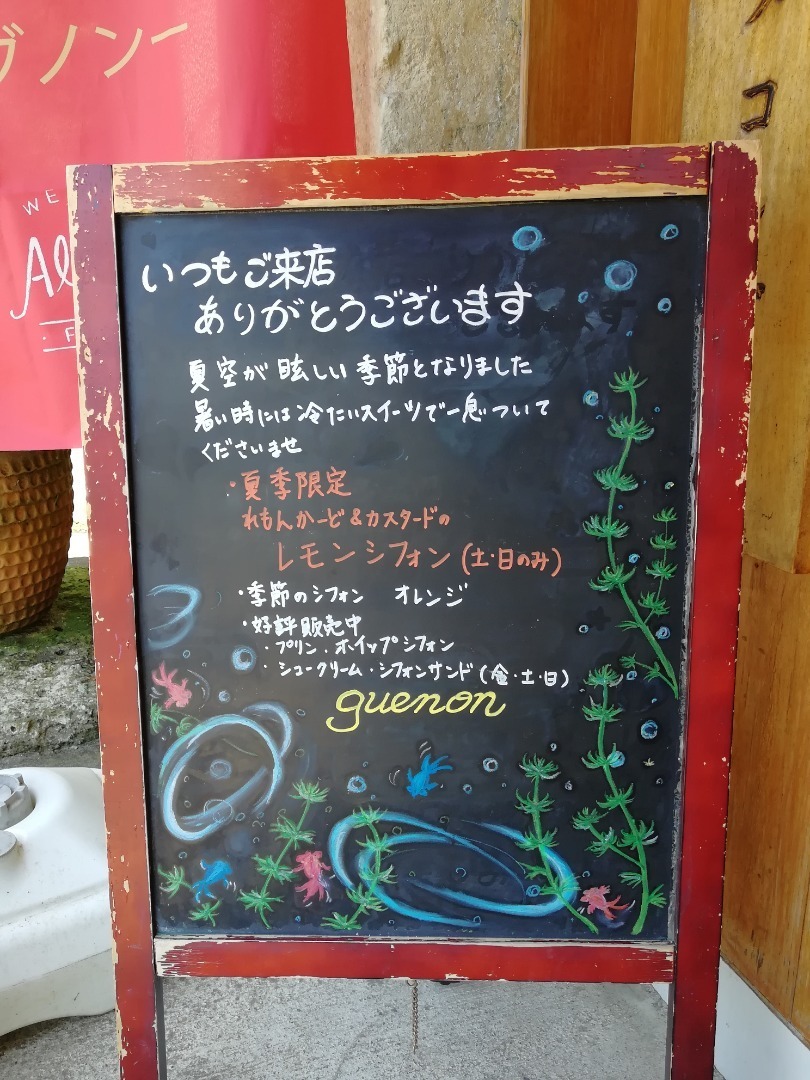 グノンー
WE
Al
F
コ
いつもご来店
ありがとうございます
夏空が眩しい季節となりました
暑い時には冷たいスイーツで一息ついて
くださいませ
・夏季限定
れもんかーど&カスタードの
レモンシフォン(土・日のみ)
・季節のシフォン オレンジ
・好評販売中
・プリン・ホイップシフォン
・シュークリーム・シフォンサンド(金・土・日)
guenon